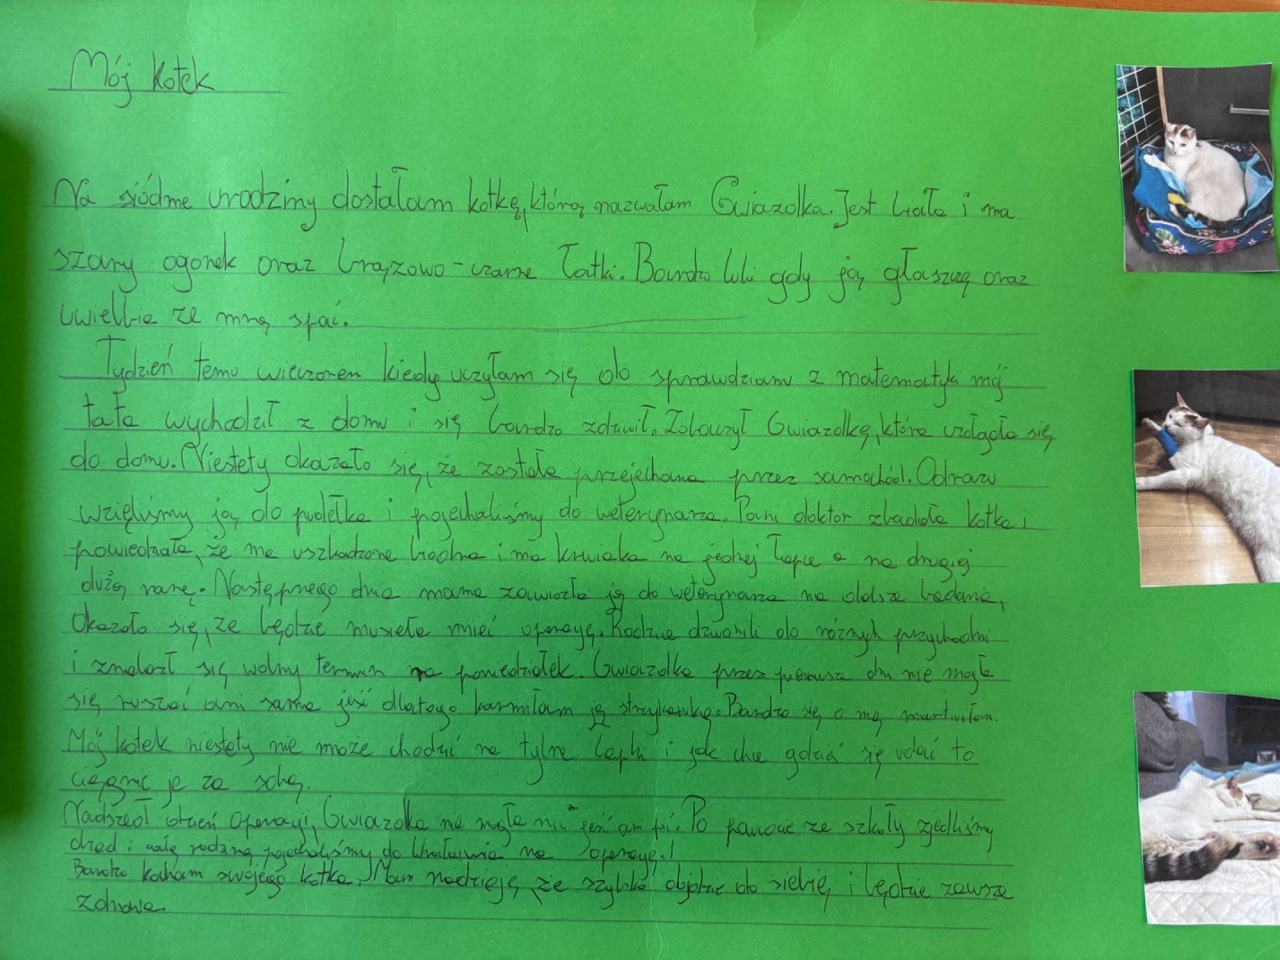 Mój kotek
Na siódme urodziny dostałam kotkę, którą nazwałam Gwiazdka. Jest biała i ma
szary ogonek oraz brązowo-czarne łatki. Bardzo lubi gdy ją głaszczę oraz
uwielbia ze mną spać.
Tydzień temu wieczorem kiedy uczyłam się do sprawdzianu z matematyki mój
tata wychodził z domu i się bardzo zdziwił. Zobaczył Gwiazdkę, która czołgała się
do domu. Niestety okazało się, że została przejechana przez samochód. Odrazu
wzięliśmy ją do pudełka i pojechaliśmy do weterynarza. Pani doktor zbadała kotka i
powiedziała, że ma uszkodzone biodra i ma krwiaka na jednej łapce a na drugiej
dużą ranę. Następnego dnia mama zawiozła ją do weterynarza na dalsze badania,
Okazało się, że będzie musiała mieć operację. Rodzice dzwonili do różnych przychodni
i znalazł się wolny termin na poniedziałek. Gwiazdka przez pierwsze dni nie mogła
się ruszać ani sama jeść dlatego karmiłam ją strzykawką. Bardzo się o nią martwiłam.
Mój kotek niestety nie może chodzić na tylne łapki i jak chce gdzieś się udać to
ciągnie je za sobą.
Nadszedł dzień operacji, Gwiazdka nie mogła nic jeść ani pić. Po powrocie ze szkoły zjedliśmy
obiad i całą rodziną pojechaliśmy do na operację!
Bardzo kocham swojego kotka, Mam nadzieję, że szybko dojdzie do siebie i będzie zawsze
zdrowa.